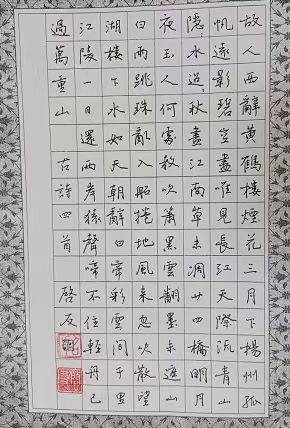 故人西辭黃鶴樓煙花三月下揚州孤
帆遠影碧空盡唯見長江天際流青山
隱々水迢々秋盡江南草未凋廿四橋明月
夜玉人何處教吹簫黑雲翻墨未遮山
白雨跳珠亂入船捲地風來忽吹散望
湖樓下水如天朝辭白帝彩雲間千里
江陵一日還兩岸猿聲啼不住輕舟已
過萬重山
古詩四首
啓友